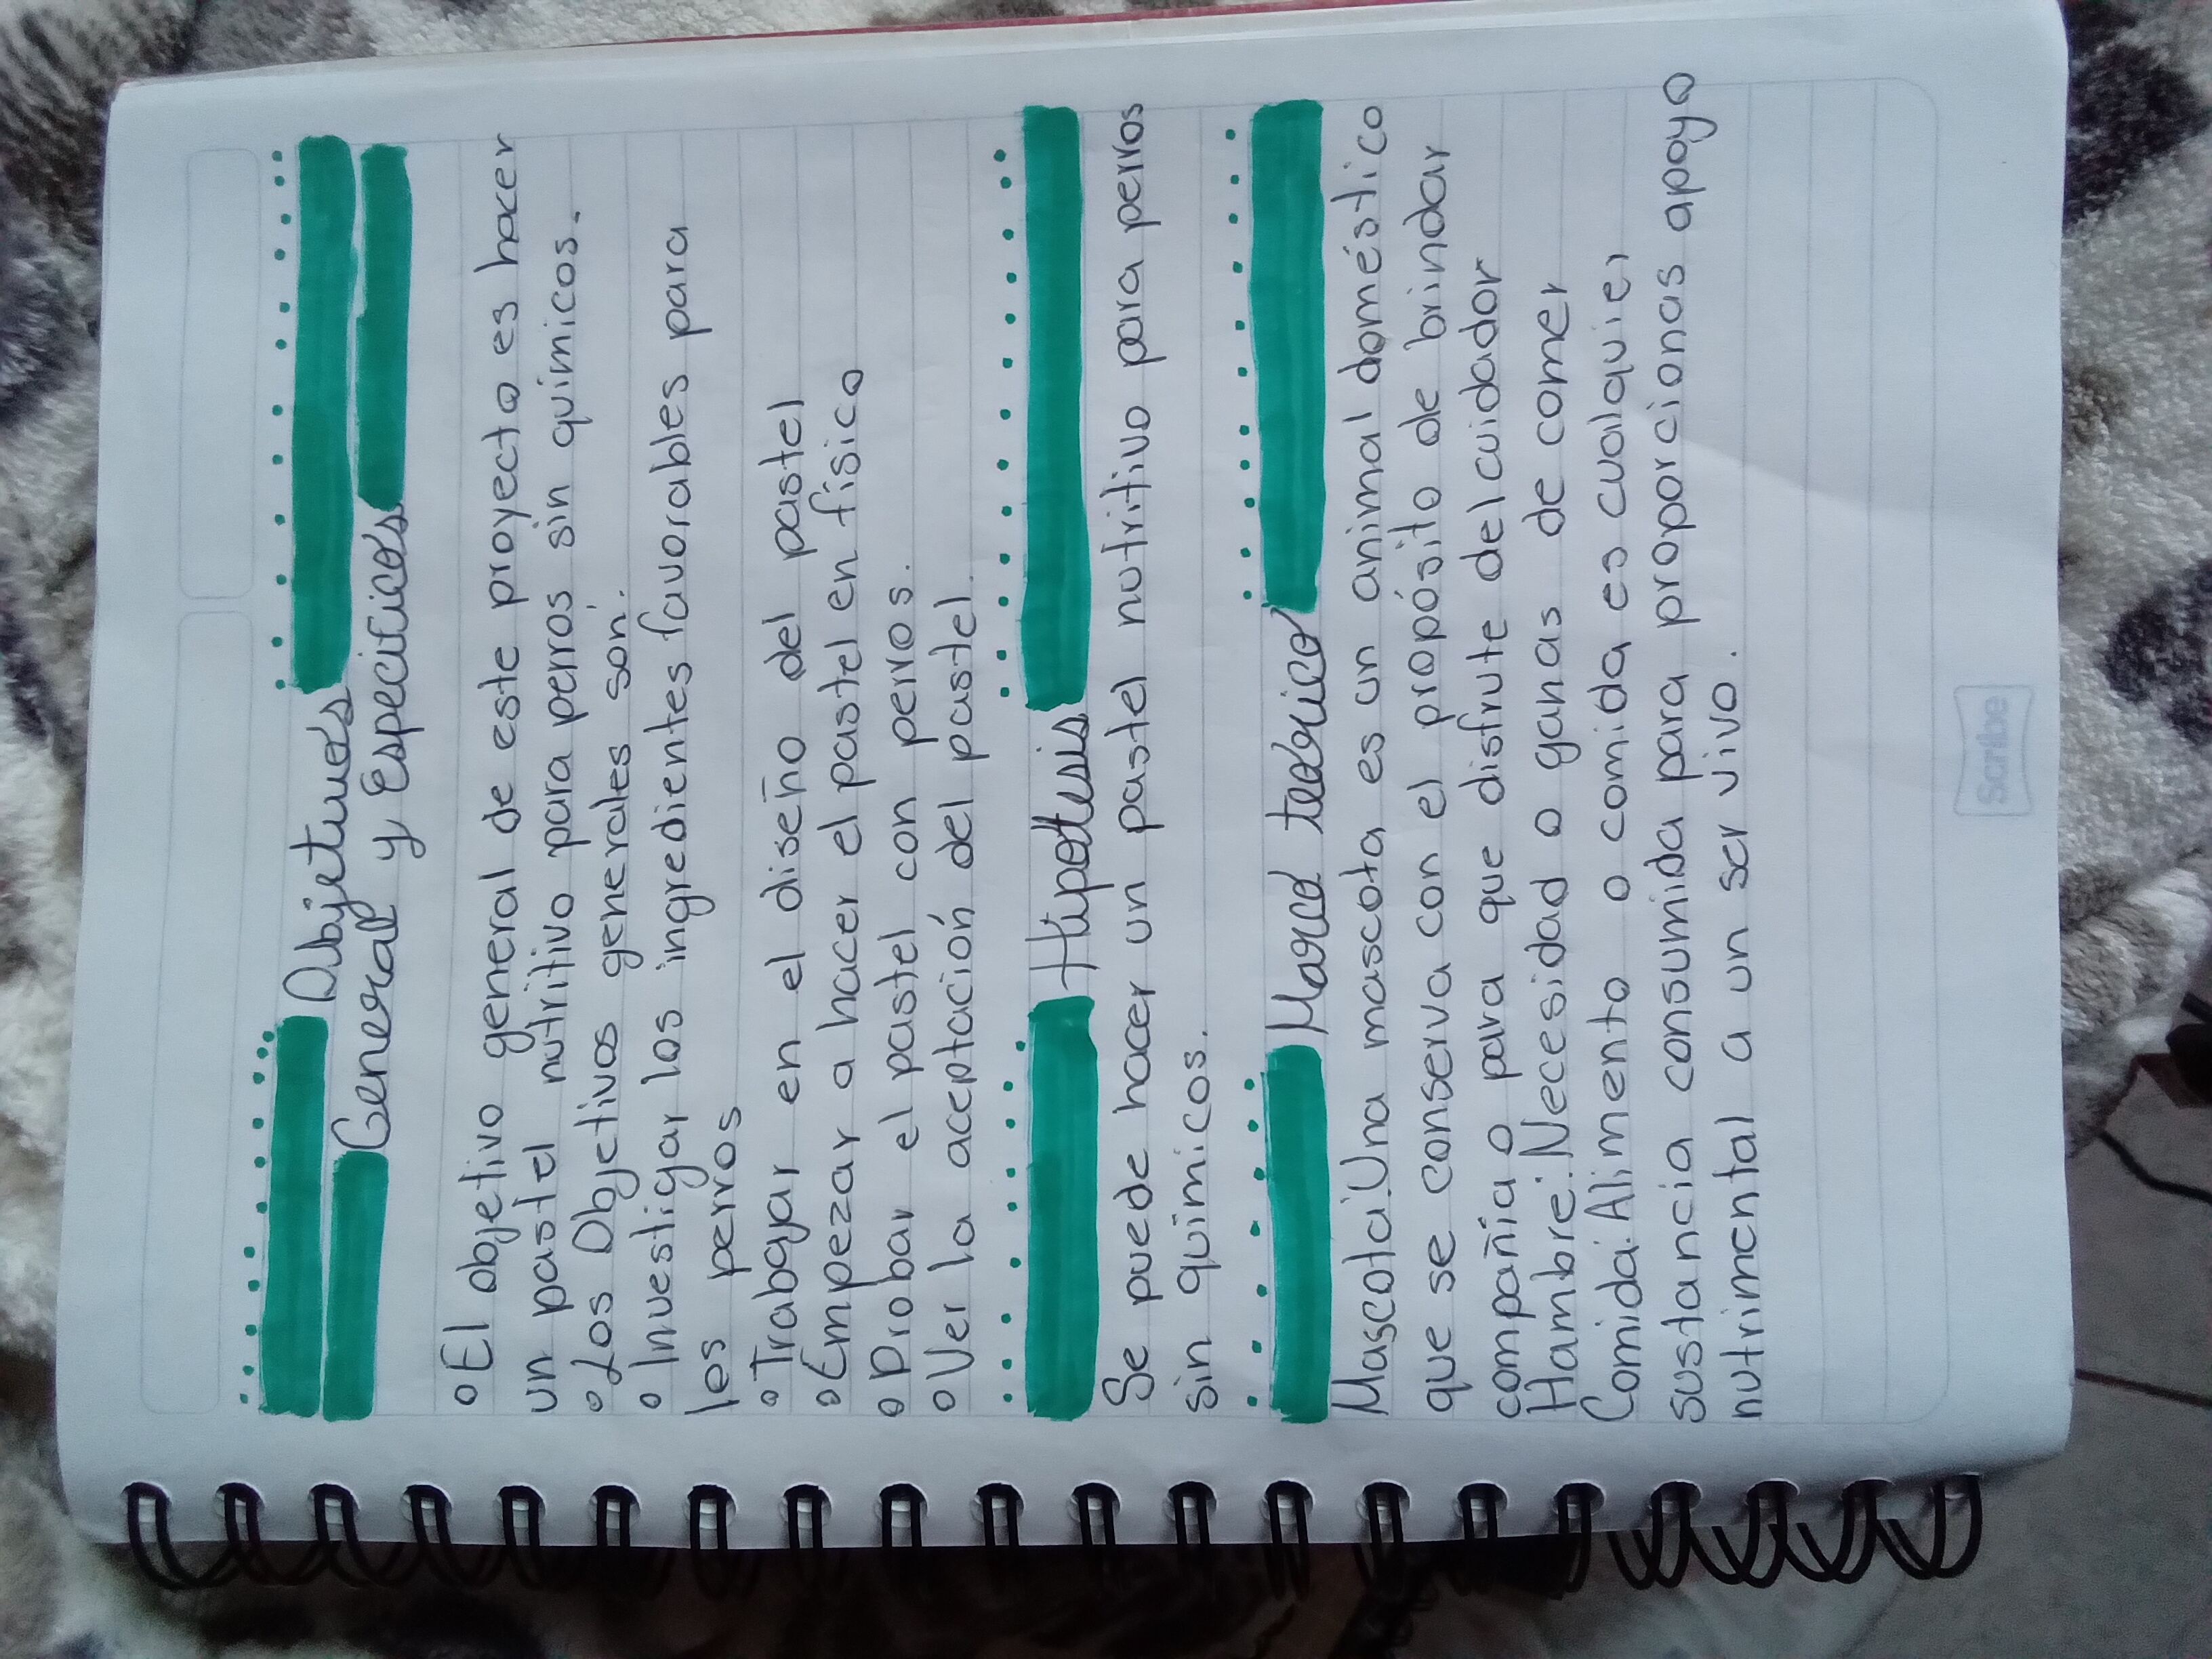 Objetivos
General y Específicos
El objetivo general de este proyecto es hacer
un pastel nutritivo para perros sin quimicos.
Los Objetivos generales son:
Investigar los ingredientes favorables para
los perros
Trabajar en el diseño del pastel
Empezar a hacer el pastel en físico
Probar el pastel con perros.
Ver la aceptación del pastel.
Hipotesis
Se puede hacer un pastel nutritivo para perros
sin quimicos.
Marco teorico
Mascota: Una mascota es un animal doméstico
que se conserva con el propósito de brindar
compañia o para que disfrute del cuidador
Hambre: Necesidad o ganas de comer
Comida: Alimento o comida es cualquier
sustancia consumida para proporcionas apoyo
nutrimental a un ser vivo.
Scribe